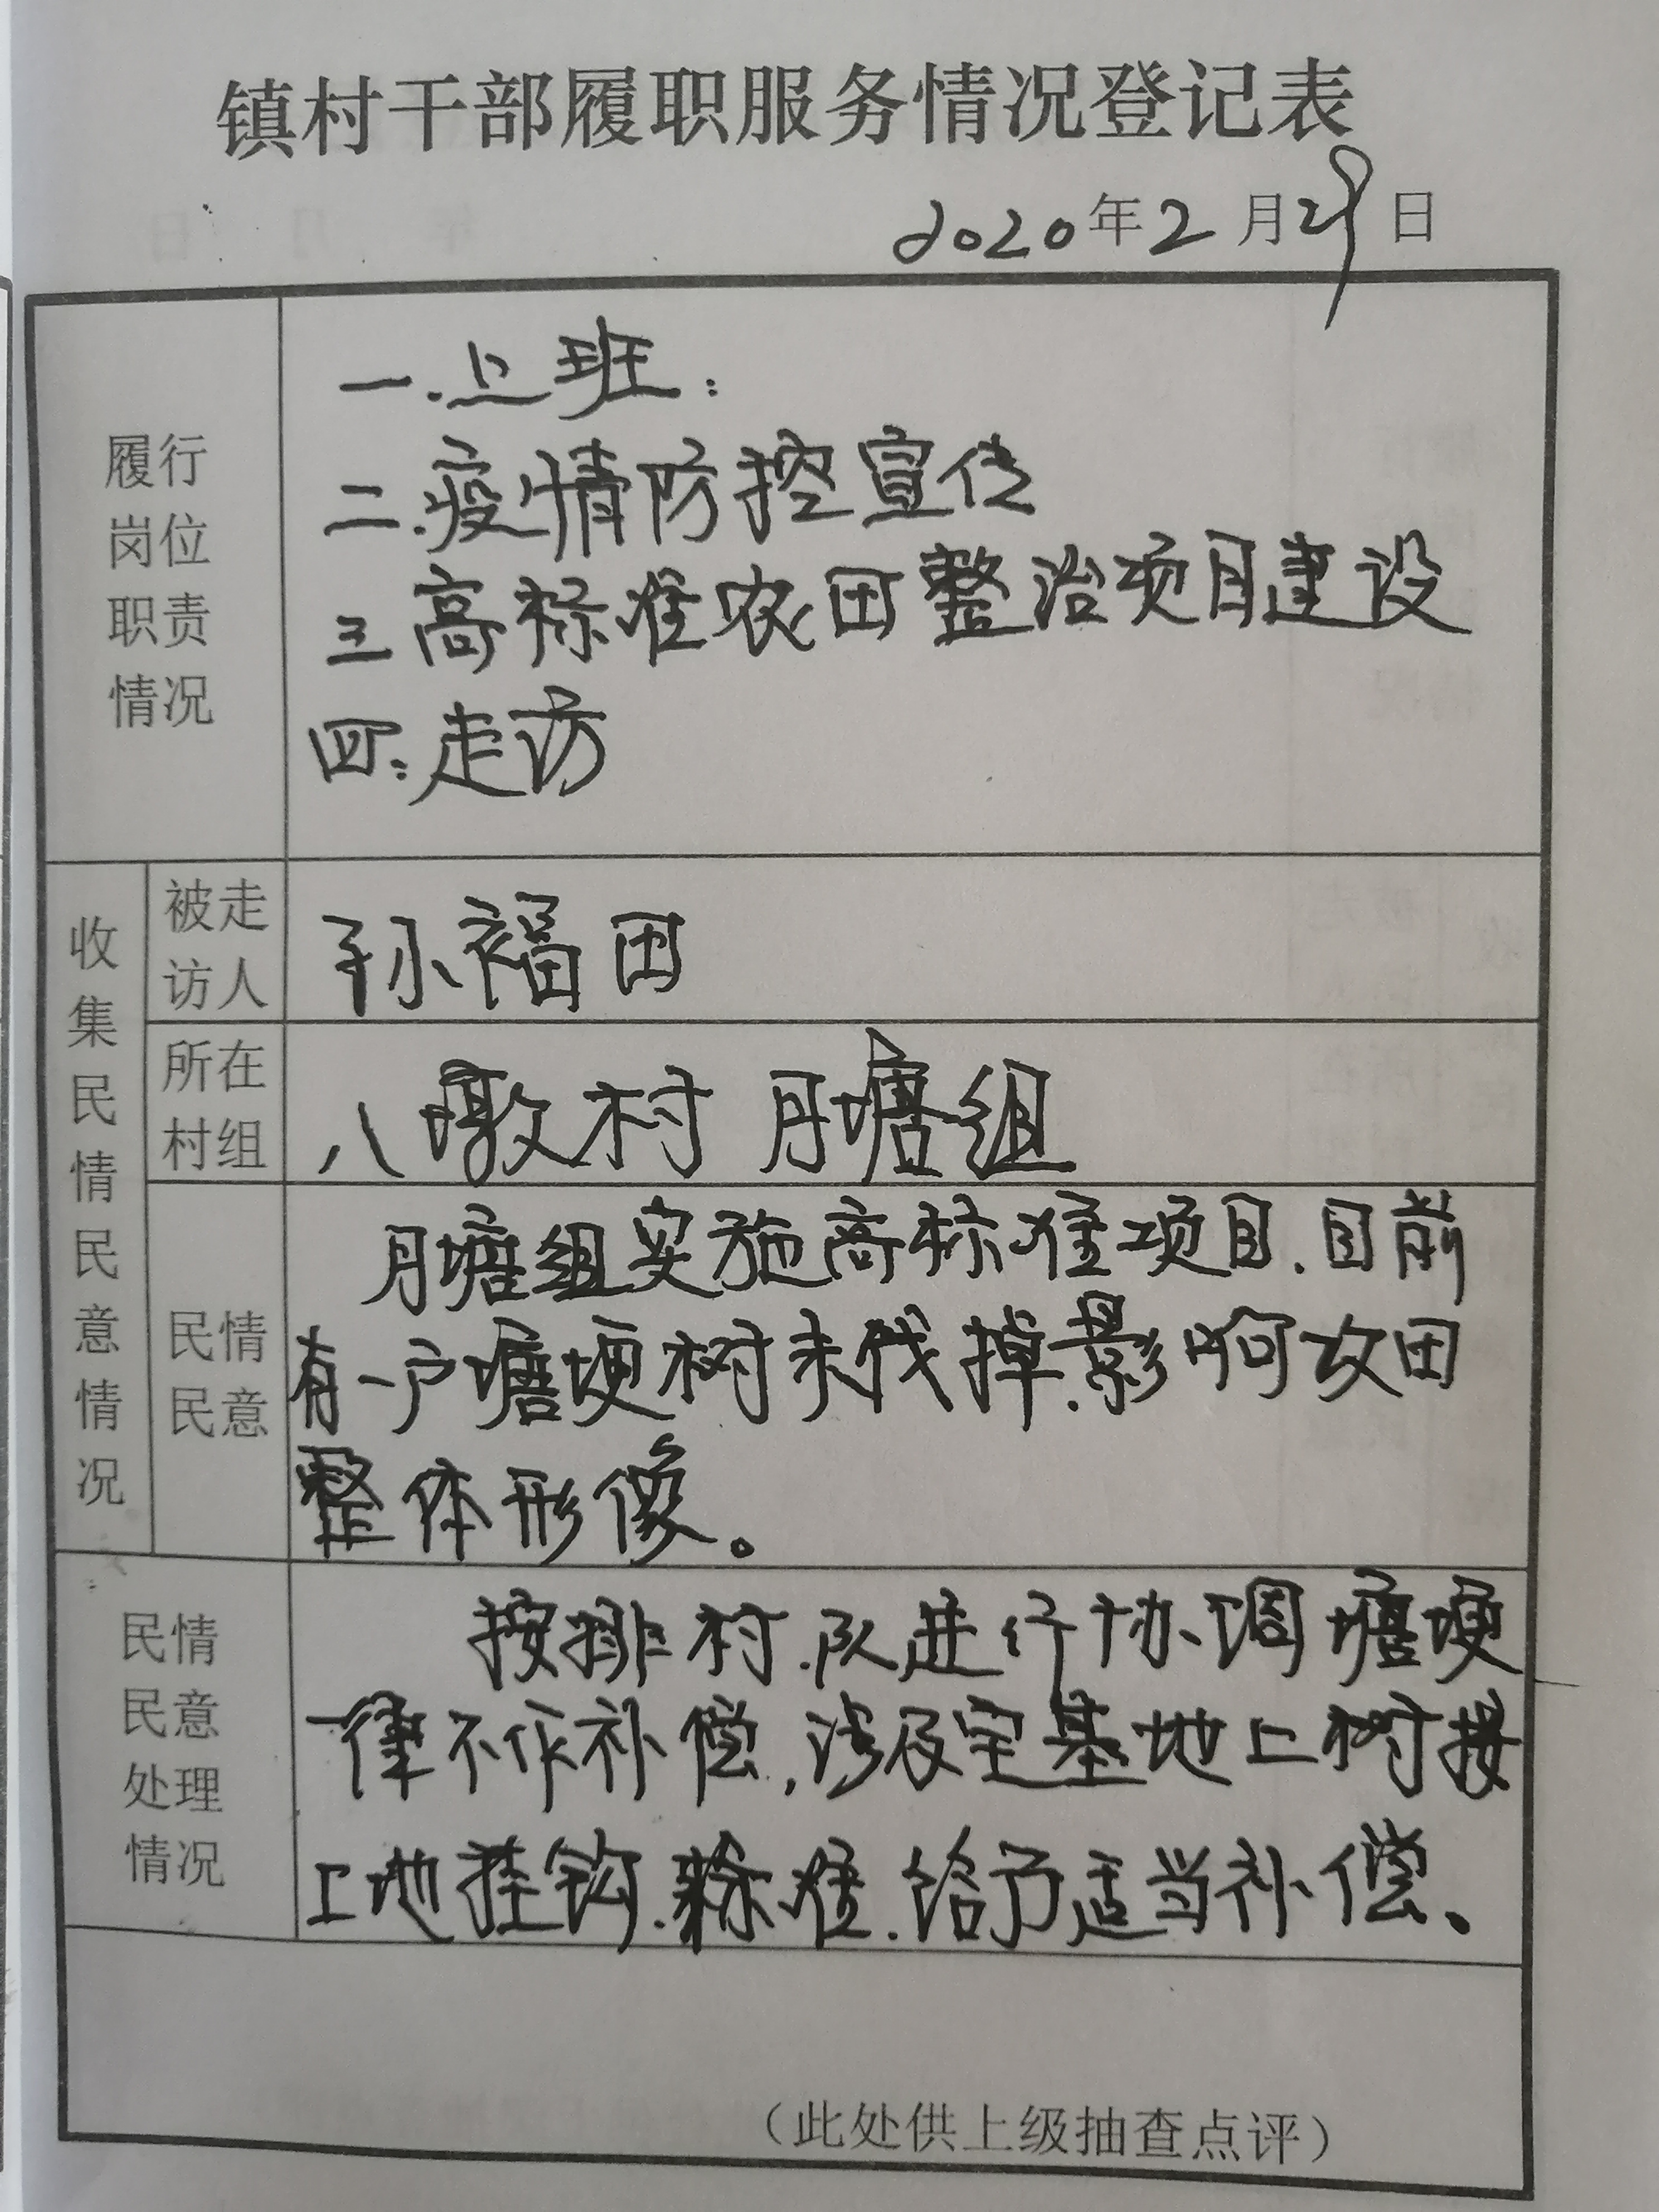 镇村干部履职服务情况登记表
2020年2月29日
履行
岗位
职责
情况
一.上班:
二.疫情防控宣传
三高标准农田整治项目建设
四:走访
收集民情民意情况
被走
访人
孙福田
所在
村组
八墩村 月塘组
民情
民意
月塘组实施高标准项目.目前
有一户塘埂树未伐掉.影响农田
整体形像。
民情
民意
处理
情况
按排村.队进行协调塘埂
一律不作补偿,涉及宅基地上树按
土地挂钩.标准.给予适当补偿、
(此处供上级抽查点评)